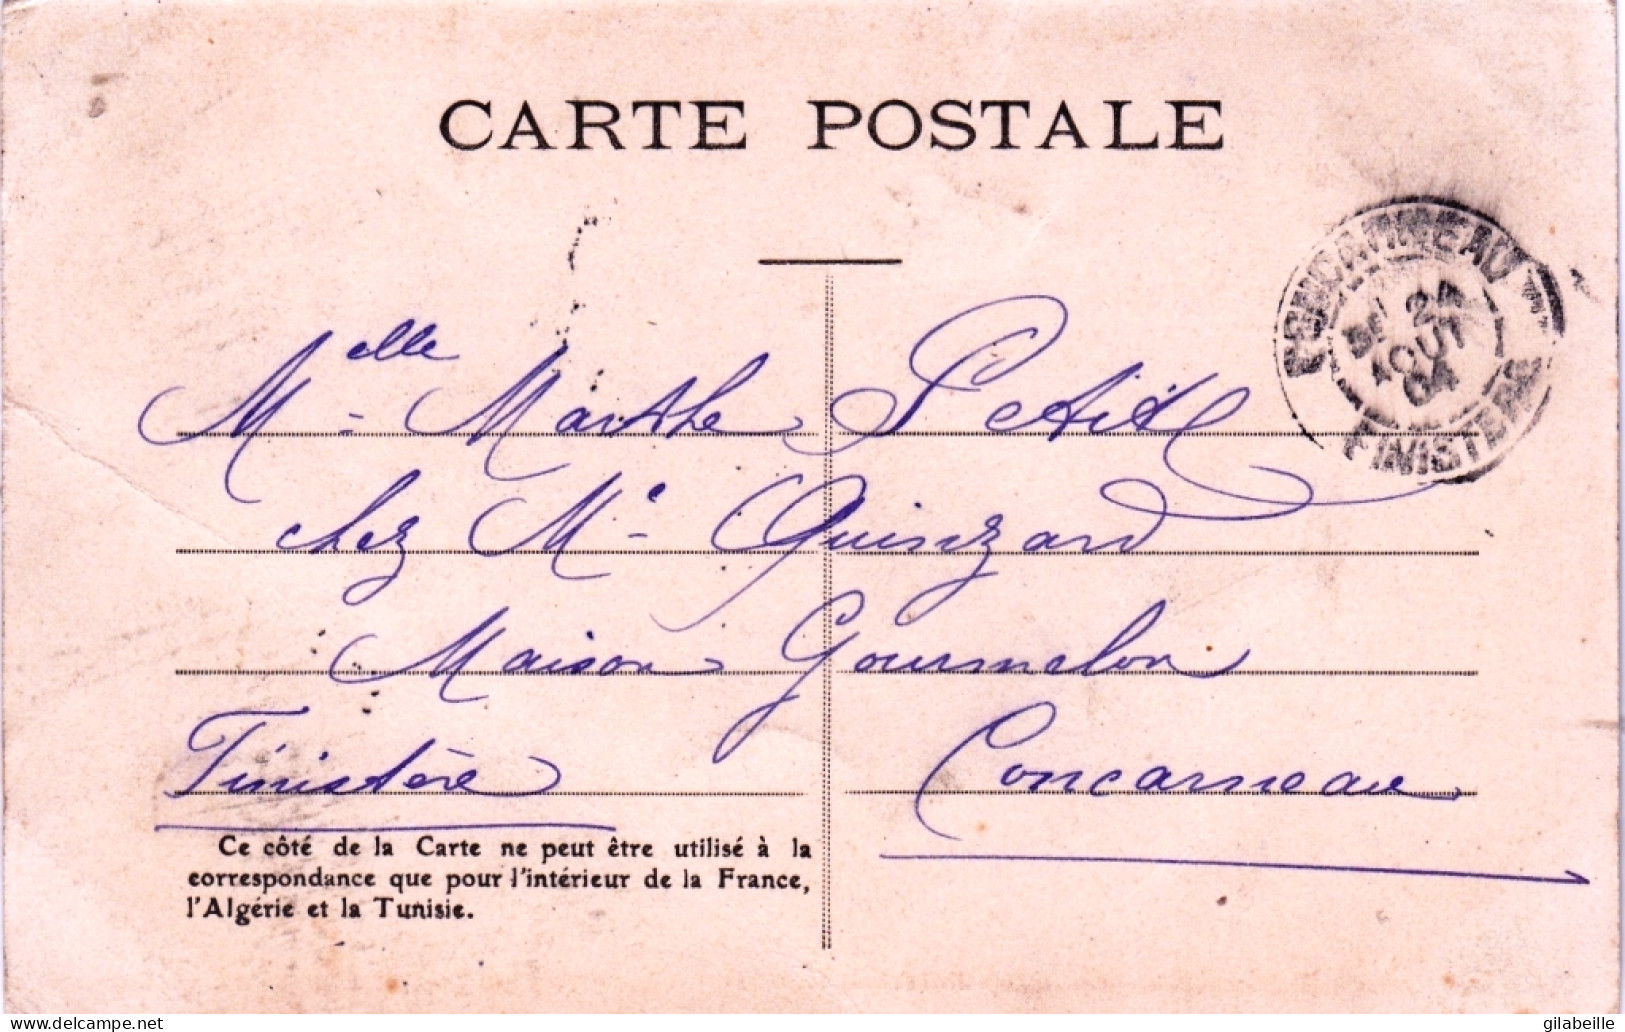 CARTE POSTALE
CONCARNEAU
AOUT
04
FINISTERE
Melle Marthe Petit
chez Me Quinizard
Maison Gourmelon
Finistère Concarneau
Ce côté de la Carte ne peut être utilisé à la
correspondance que pour l'intérieur de la France,
l'Algérie et la Tunisie.
delcampe.net
gilabeille